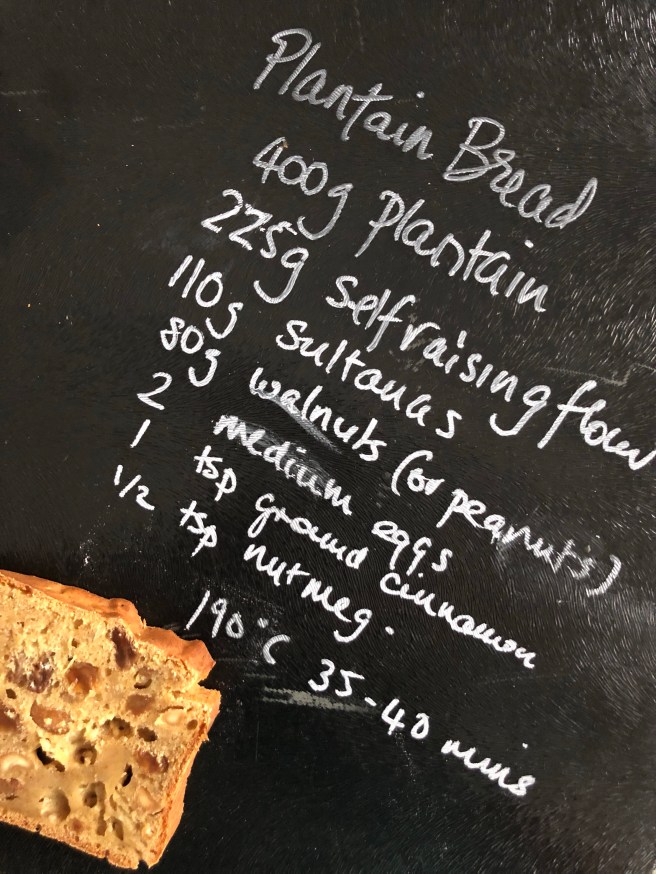 Plantain Bread
400g plantain
225g selfraising flour
110g sultanas
80g walnuts (or peanuts)
2 medium eggs
1 tsp ground cinnamon
1/2 tsp nutmeg.
190°C 35-40 mins